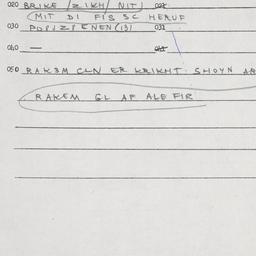 020 BRIKE /ZIKH/ NIT) 021
(MIT DI FIS SC HERUF
030 POPIZPENEN(13) 031
040 — 041
050 RAKEM CLN ER KRIKHT SHOYN AR
RAKEM GL AF ALE FIR